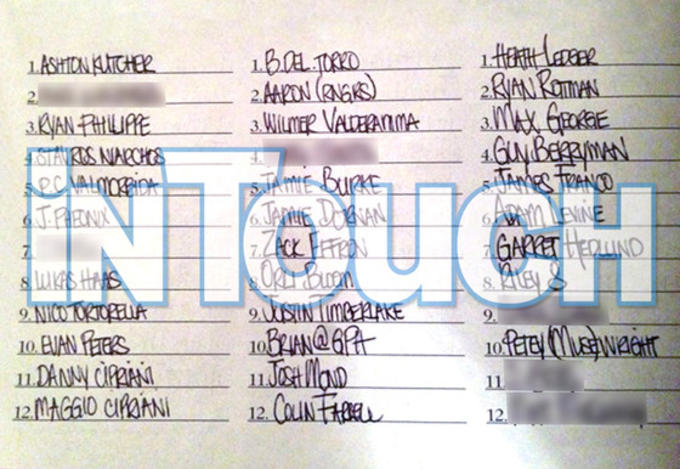 1. ASHTON KUTCHER
2.
3. RYAN PHILLIPPE
4. STAVROS NIARCHOS
5. P.C. VALMORBIDA
6. J. PHEONIX
7.
8. LUKAS HAAS
9. NICO TORTORELLA
10. EVAN PETERS
11. DANNY CIPRIANI
12. MAGGIO CIPRIANI
1. B. DEL TORRO
2. AARON (RNGRS)
3. WILMER VALDERAMMA
4.
5. JAMIE BURKE
6. JAMIE DORNAN
7. ZACK EFFRON
8. ORLI BLOOM
9. JUSTIN TIMBERLAKE
10. BRIAN@GPA
11. JOSH MOND
12. COLIN FARRELL
1. HEATH LEDGER
2. RYAN ROTTMAN
3. MAX GEORGE
4. GUY BERRYMAN
5. JAMES FRANCO
6. ADAM LEVINE
7. GARRET HEDLUND
8. RILEY S
9.
10. PETEY (MUSE) WRIGHT
11.
12.
iNTOUCH